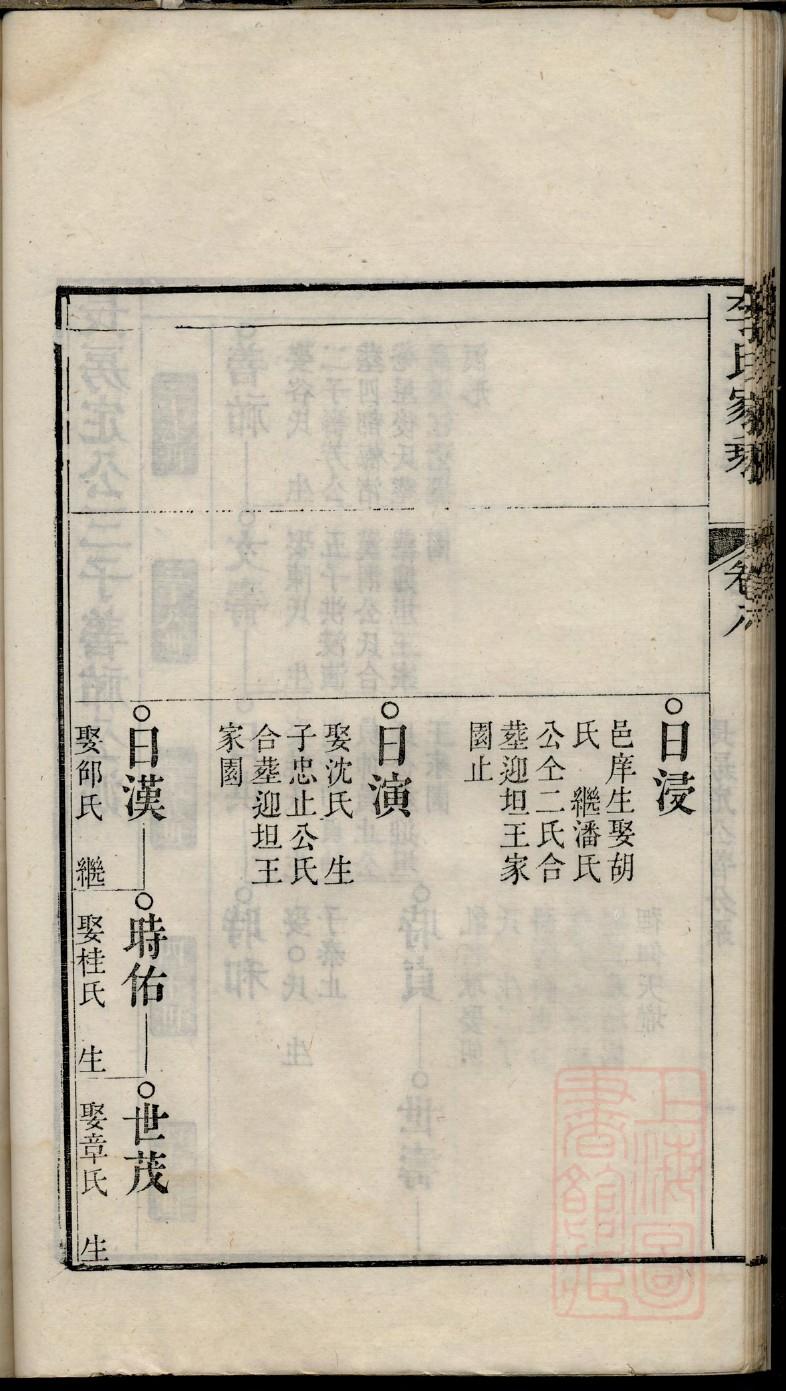 李氏家乘
卷八
日浸
邑庠生娶胡
氏　繼潘氏
公仝二氏合
塟迎坦王家
園止
日演
娶沈氏　生
子忠止公氏
合塟迎坦王
家園
日漢
娶邰氏　繼
時佑
娶桂氏　生
世茂
娶章氏　生
上海圖
書館藏